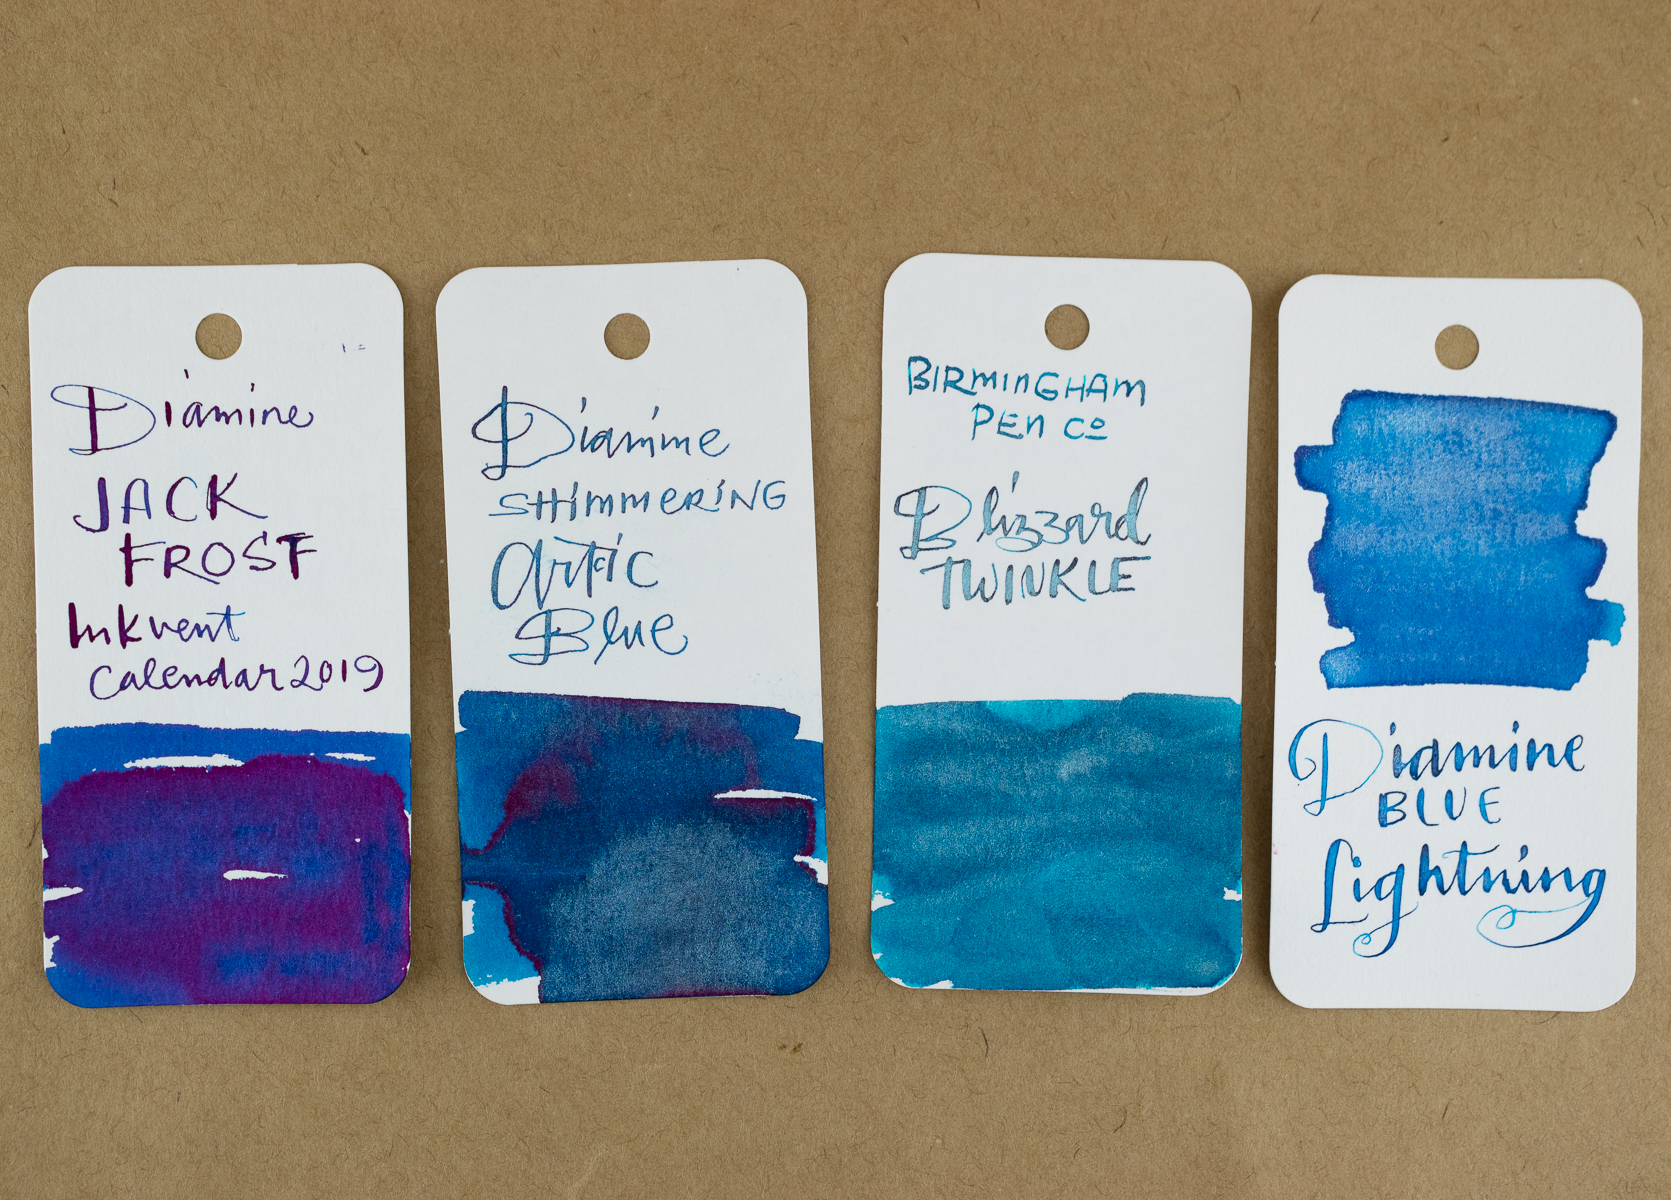 Diamine
JACK
FROST
Inkvent
Calendar 2019
Diamine
SHIMMERING
Artic
Blue
BIRMINGHAM
PEN Co
Blizzard
TWINKLE
Diamine
BLUE
Lightning